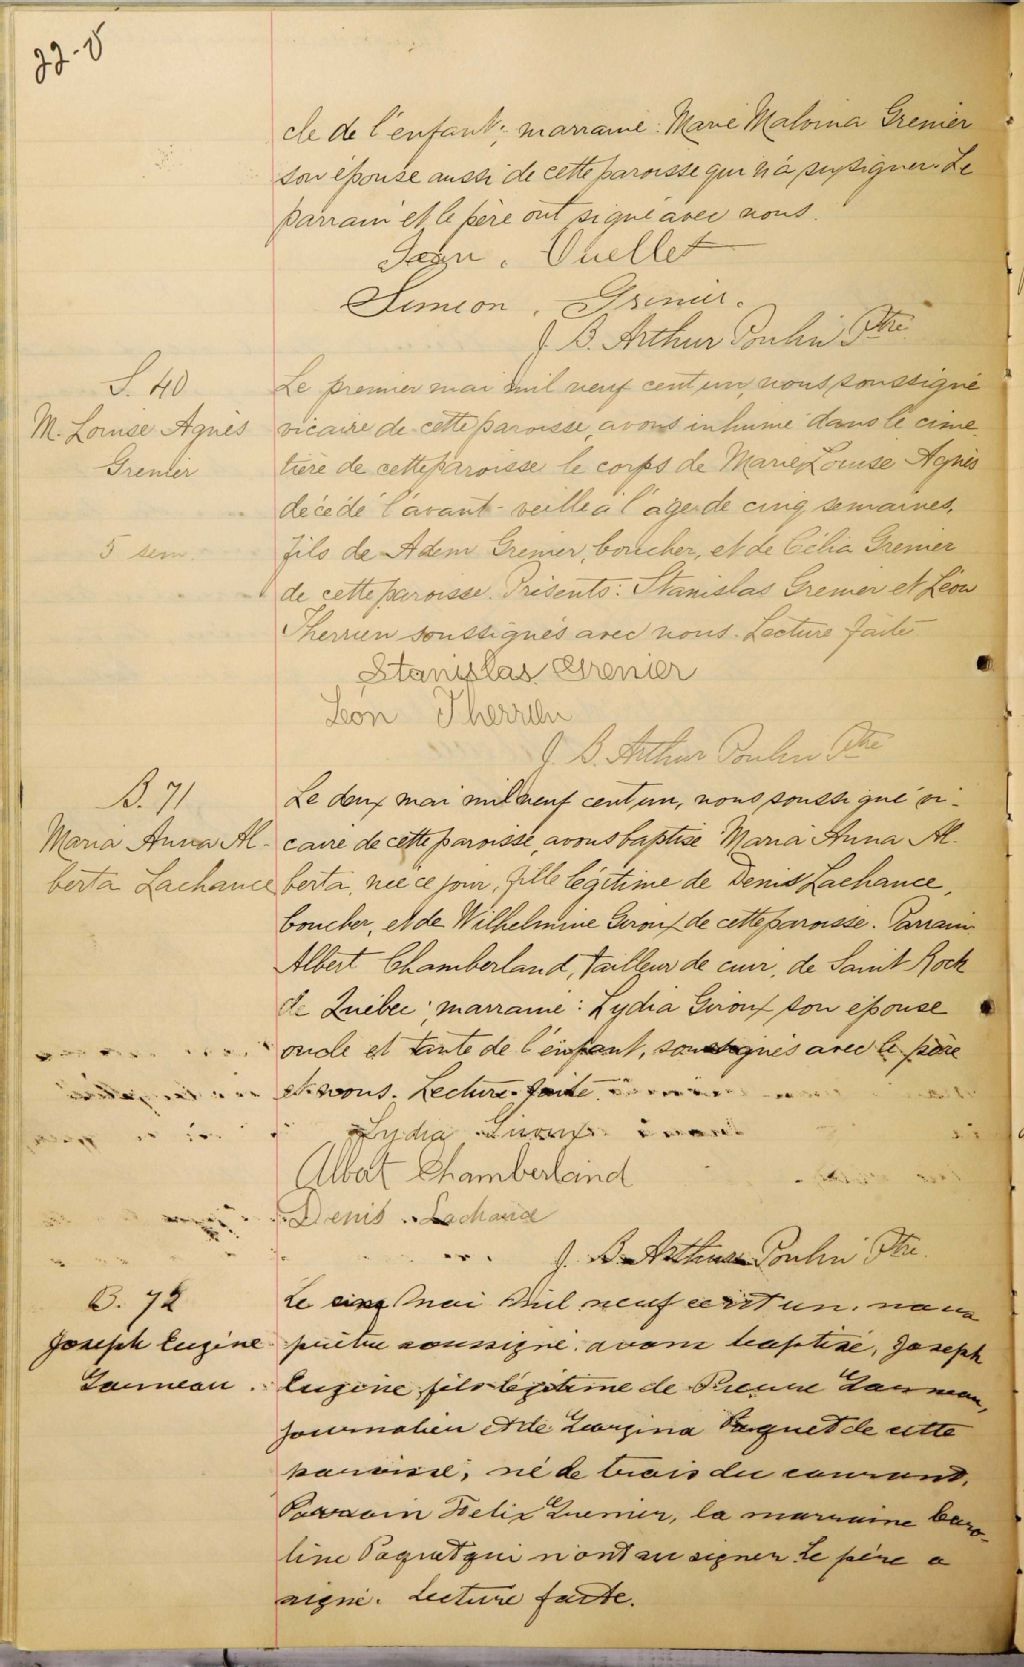 22-v
cle de l'enfant; marraine: Marie Malvina Grenier
son épouse aussi de cette paroisse qui n'a pu signer. Le
parrain et le père ont signé avec nous.
Jean Ouellet
Simeon Grenier.
J. B. Arthur Poulin Ptre
S. 40
M. Louise Agnès
Grenier
5 sem.
Le premier mai mil neuf cent un, nous soussigné
vicaire de cette paroisse, avons inhumé dans le cime
tière de cette paroisse le corps de Marie Louise Agnès
décédé l'avant-veille à l'age de cinq semaines,
fils de Adem Grenier, boucher, et de Célia Grenier
de cette paroisse. Présents: Stanislas Grenier et Léon
Therrien soussignés avec nous. Lecture faite
Stanislas Grenier
Léon Therrien
J. B. Arthur Poulin Ptre
B. 71
Maria Anna Al-
berta Lachance
Le deux mai mil neuf cent un, nous soussigné vi-
caire de cette paroisse, avons baptisé Maria Anna Al-
berta, née ce jour, fille légitime de Denis Lachance,
boucher, et de Wilhelmine Giroux de cette paroisse. Parrain
Albert Chamberland, tailleur de cuir, de Saint Rock
de Québec; marraine: Lydia Giroux son épouse
oncle et tante de l'enfant, soussignés avec le père
et nous. Lecture faite.
Lydia Giroux
Albert Chamberland
Denis Lachance
J. B. Arthur Poulin Ptre.
B. 72
Joseph Eugène
Garneau.
Le cinq Mai Mil neuf cent un, nous
prêtre soussigné, avons baptisé, Joseph
Eugène, fils légitime de Pierre Garneau,
journalier et de Georgina Paquet de cette
paroisse, né le trois du courant.
Parrain Felix Grenier, la marraine Caro-
line Paquet qui n'ont su signer. Le père a
signé. Lecture faite.